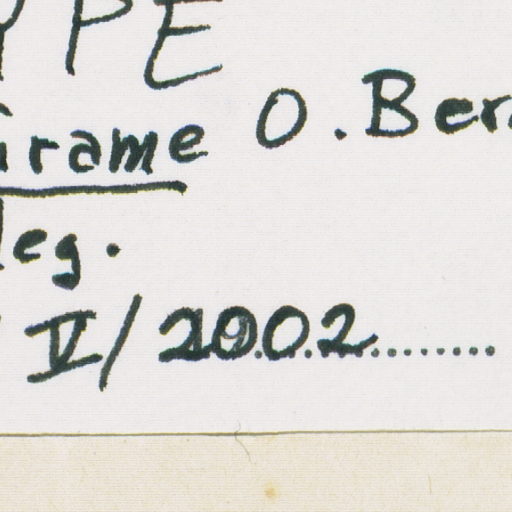 YPE
Grame O. Ber
leg.
V/2002